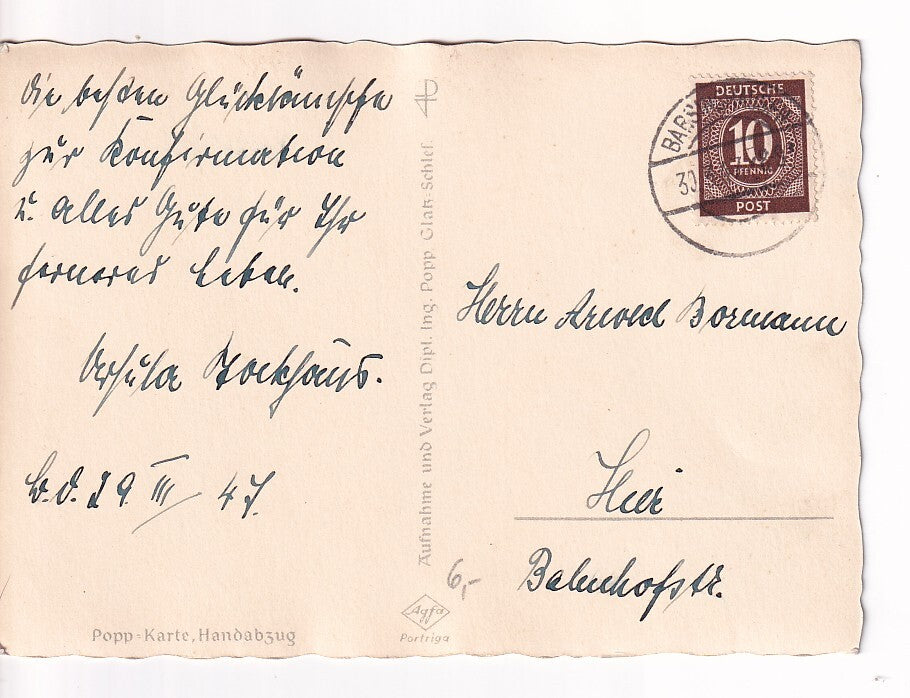 Die besten Glückwünsche
zur Konfirmation
u. alles Gute für Ihr
ferneres Leben.
Ursula
29. III 47.
Popp-Karte, Handabzug
Aufnahme und Verlag Dipl. Ing. Popp Glatz-Schles.
6,-
Agfa
Portriga
DEUTSCHE
10
PFENNIG
POST
30
Herrn Arwed Bormann
Hier
Bahnhofstr.